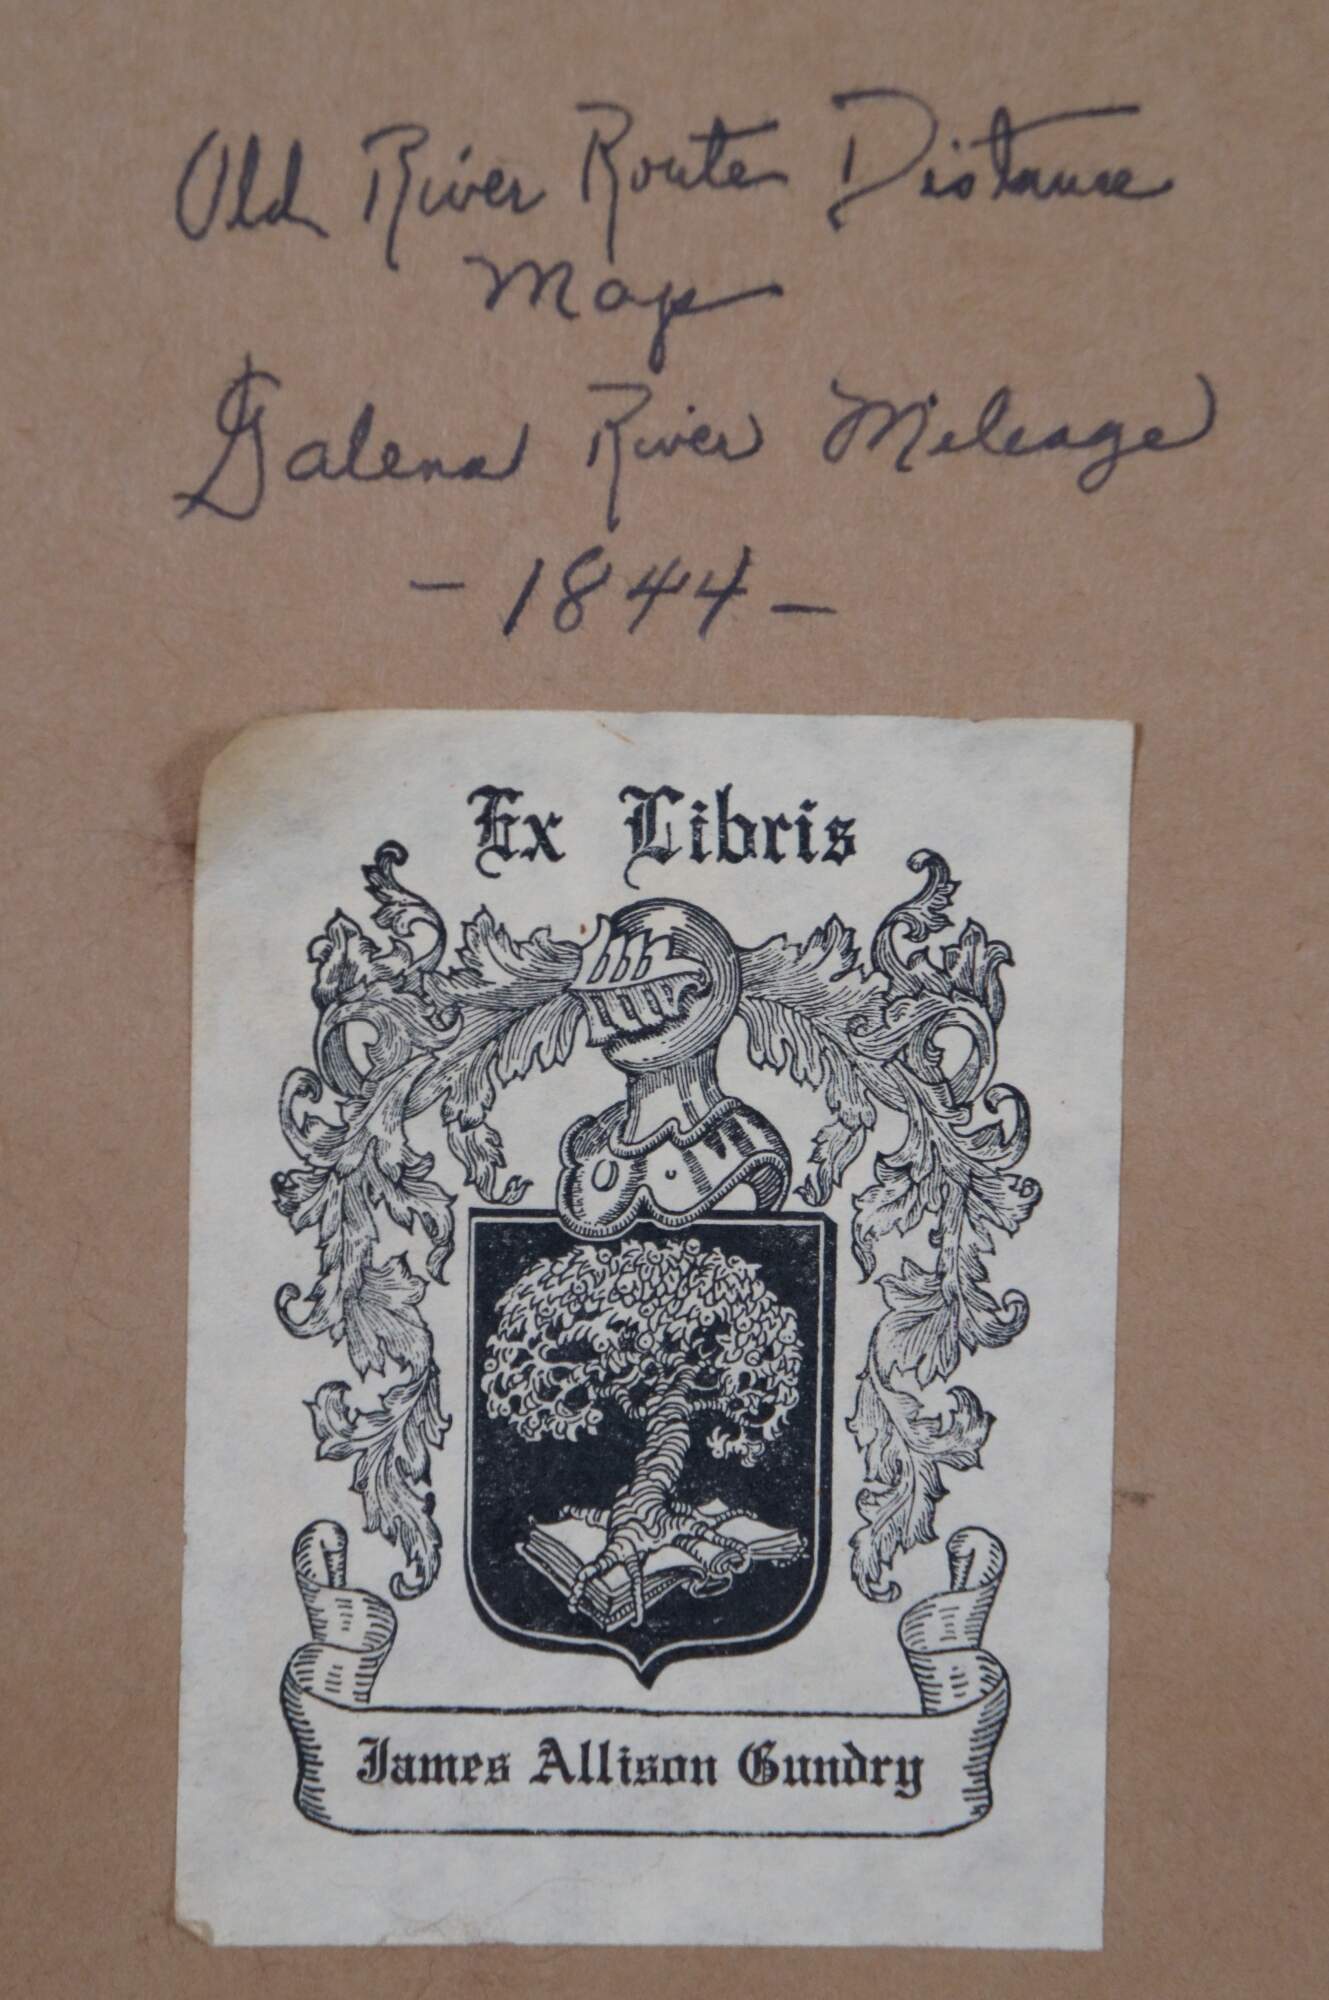 Old River Route Distance
Map
Galena River Mileage
- 1844 -
Ex Libris
James Allison Gundry